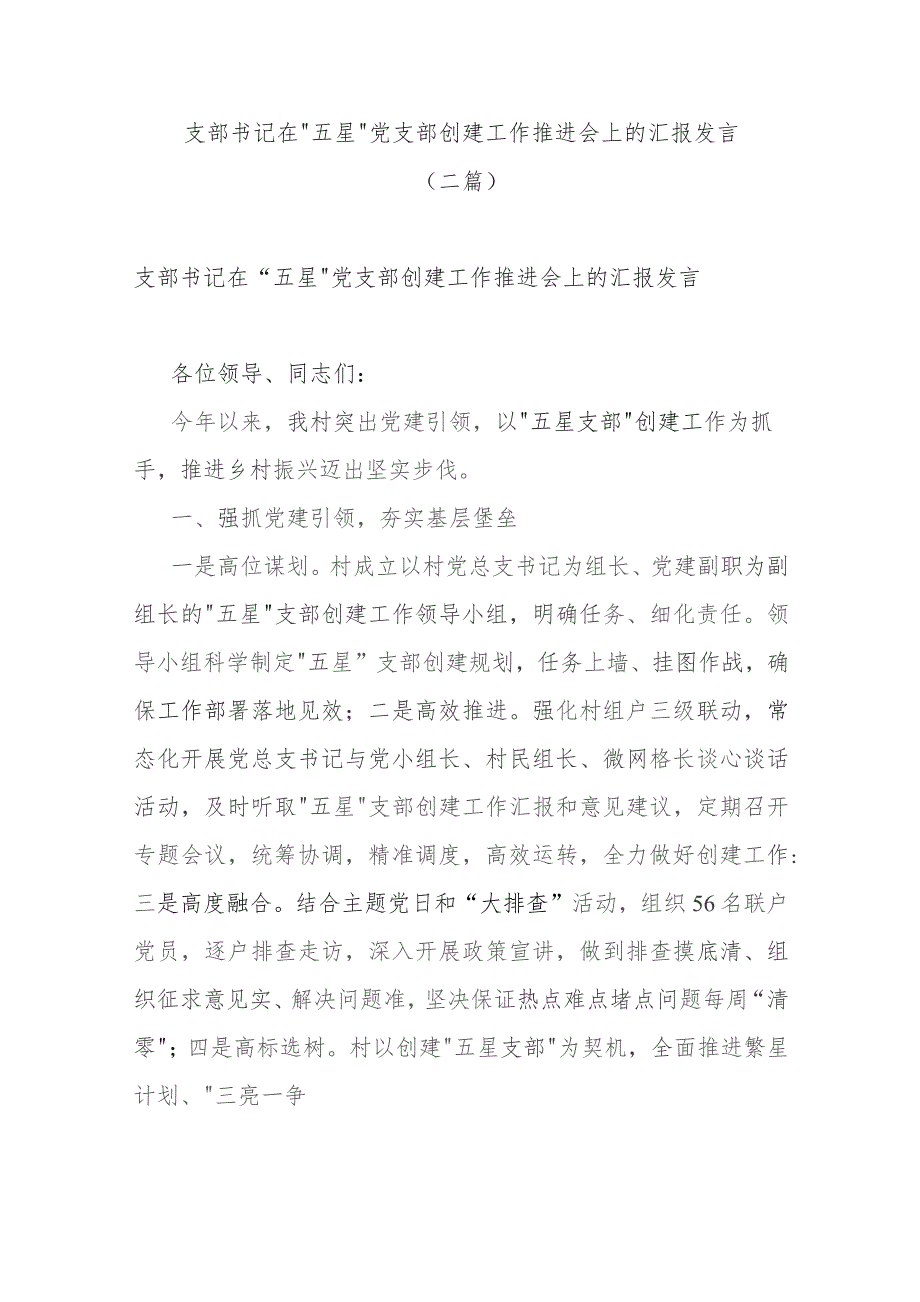 支部书记在"五星"党支部创建工作推进会上的汇报发言
（二篇）
支部书记在“五星"党支部创建工作推进会上的汇报发言
各位领导、同志们：
今年以来，我村突出党建引领，以"五星支部"创建工作为抓
手，推进乡村振兴迈出坚实步伐。
一、强抓党建引领，夯实基层堡垒
一是高位谋划。村成立以村党总支书记为组长、党建副职为副
组长的"五星"支部创建工作领导小组，明确任务、细化责任。领
导小组科学制定"五星”支部创建规划，任务上墙、挂图作战，确
保工作部署落地见效；二是高效推进。强化村组户三级联动，常
态化开展党总支书记与党小组长、村民组长、微网格长谈心谈话
活动，及时听取"五星"支部创建工作汇报和意见建议，定期召开
专题会议，统筹协调，精准调度，高效运转，全力做好创建工作:
三是高度融合。结合主题党日和“大排查”活动，组织56名联户
党员，逐户排查走访，深入开展政策宣讲，做到排查摸底清、组
织征求意见实、解决问题准，坚决保证热点难点堵点问题每周“清
零"；四是高标选树。村以创建"五星支部"为契机，全面推进繁星
计划、"三亮一争